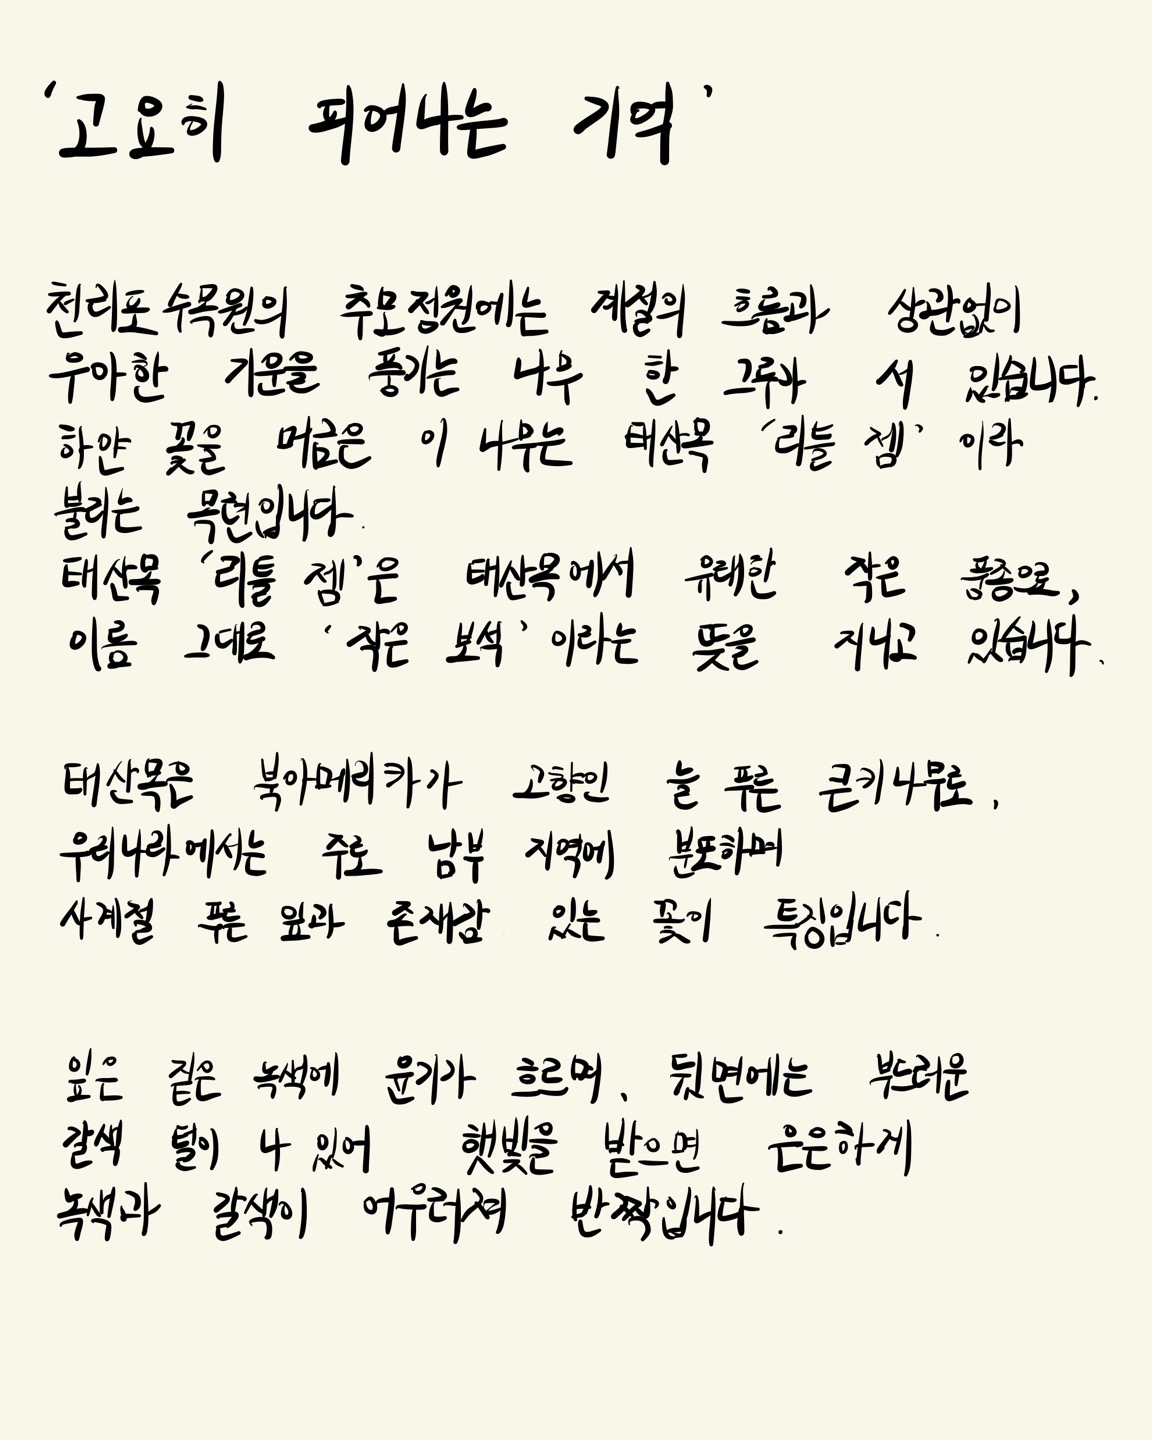 ‘고요히 피어나는 기억’
천리포수목원의 추모정원에는 계절의 흐름과 상관없이
우아한 기운을 풍기는 나무 한 그루가 서 있습니다.
하얀 꽃을 머금은 이 나무는 태산목 ‘리틀 젬’ 이라
불리는 목련입니다.
태산목 ‘리틀 젬’은 태산목에서 유래한 작은 품종으로,
이름 그대로 ‘작은 보석’이라는 뜻을 지니고 있습니다.
태산목은 북아메리카가 고향인 늘 푸른 큰키나무로,
우리나라에서는 주로 남부 지역에 분포하며
사계절 푸른 잎과 존재감 있는 꽃이 특징입니다.
잎은 짙은 녹색에 윤기가 흐르며, 뒷면에는 부드러운
갈색 털이 나 있어 햇빛을 받으면 은은하게
녹색과 갈색이 어우러져 반짝입니다.